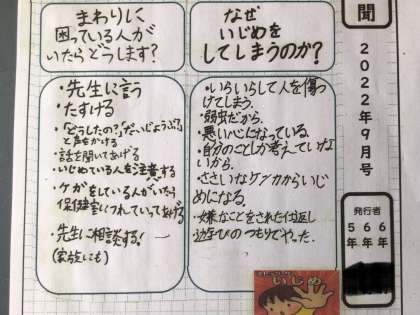 聞
2022年9月号
発行者
5年
6年
6年
なぜ
いじめを
してしまうのか?
・いらいらして人を傷つ
けてしまう.
・弱虫だから.
・悪い心になっている.
・自分のことしか考えていな
いから.
・ささいなケンカからいじ
めになる.
・嫌なことをされた仕返し
・遊びのつもりでやった.
まわりに
困っている人が
いたらどうします?
・先生に言う
・たすける
「どうしたの?」「だいじょうぶ?」
と声をかける
・話を聞いてあげる
・いじめている人を注意する
・ケガをしている人がいたら
保健室につれていってあげる
・先生に相談する!
(家族にも)
いじめ